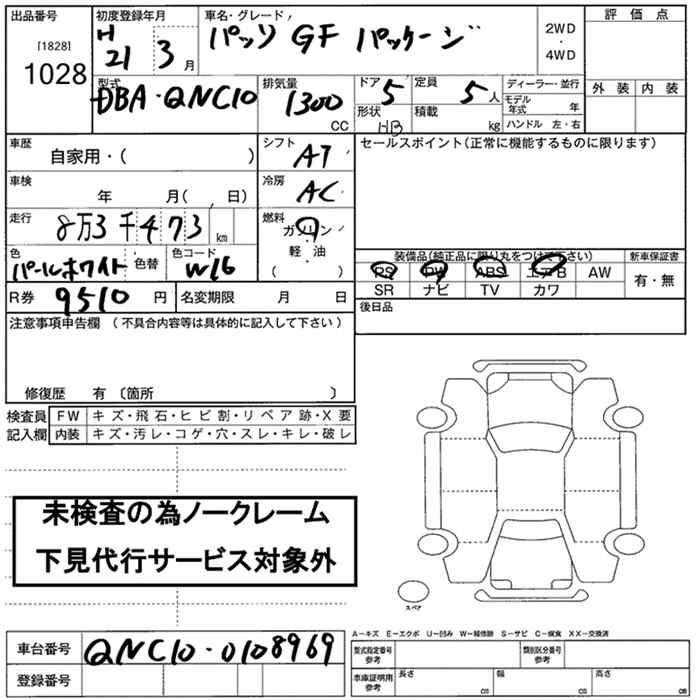 出品番号 初度登録年月 車名・グレード 評価点
[1828] H パッソ GF パッケージ 2WD
1028 21 3 月 ・ 4WD
型式 排気量 ドア 定員 ディーラー・並行 外装 内装
DBA・QNC10 1300 5 5 人 モデル年式 年
CC 形状 HB 積載 kg ハンドル 左・右
車歴 自家用・( ) シフト AT セールスポイント(正常に機能するものに限ります)
車検 年 月( 、 日) 冷房 AC
走行 8万3千473 km 燃料 ガソリン
軽・油
( )
色 パールホワイト 色替 色コード W16 装備品(純正品に限り丸をつけて下さい) 新車保証書
PS PW ABS エアB AW 有・無
SR ナビ TV カワ
R券 9510 円 名変期限 月 日 後日品
注意事項申告欄 (不具合内容等は具体的に記入して下さい)
修復歴 有 〔箇所 〕
検査員 FW キズ・飛石・ヒビ割・リペア跡・X要
記入欄 内装 キズ・汚レ・コゲ・穴・スレ・キレ・破レ
未検査の為ノークレーム
下見代行サービス対象外
スペア
A−キズ E−エクボ U−凹み W−補修跡 S−サビ C−腐食 XX−交換済
車台番号 QNC10-0108969 型式指定番号 参考 類別区分番号 参考
登録番号 車庫証明用 参考 長さ cm 幅 cm 高さ cm